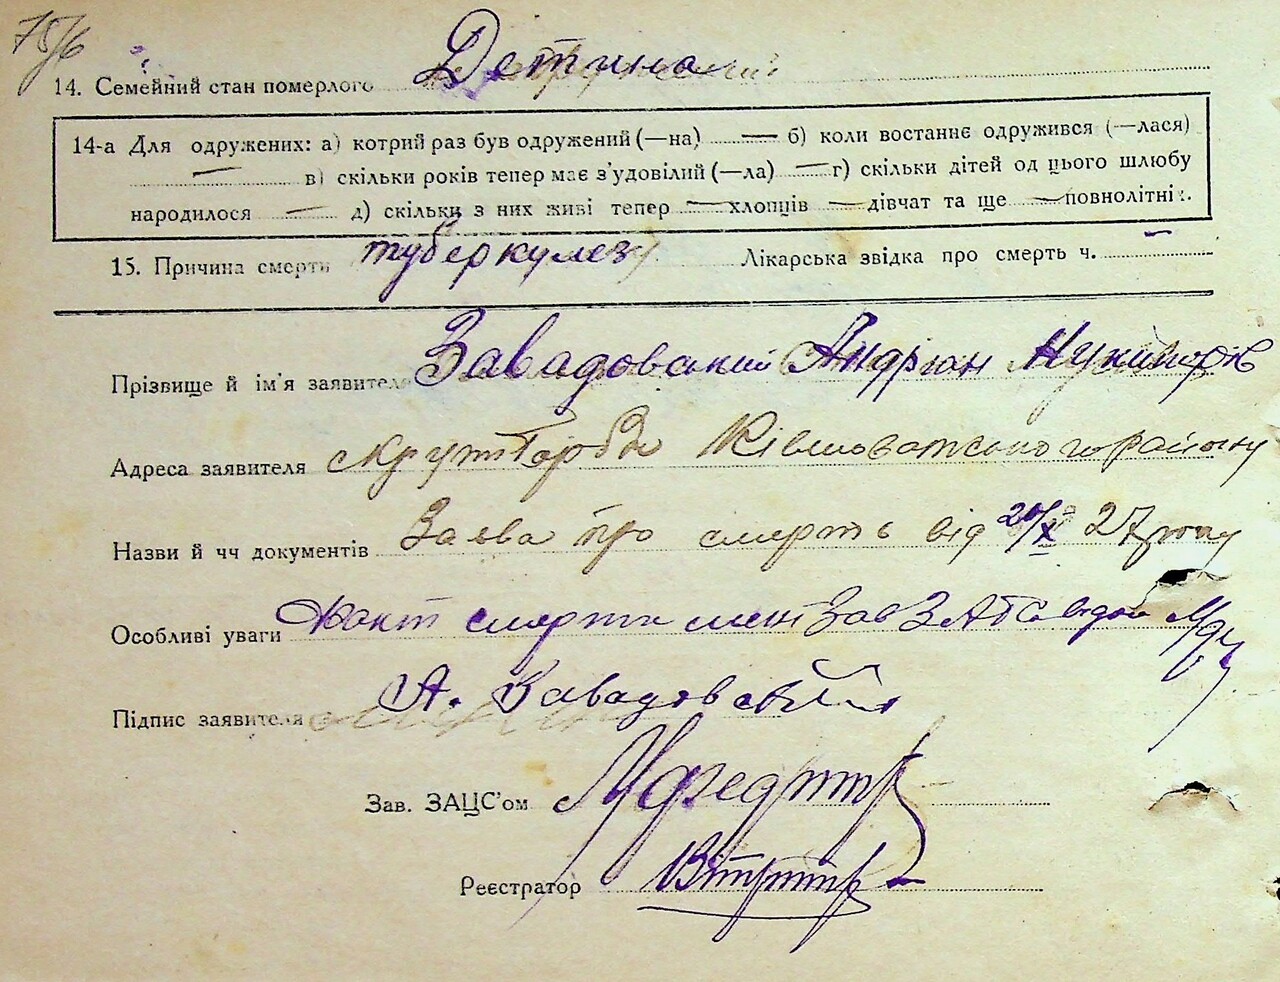 75/6
14. Семейний стан померлого Детина
14-а Для одружених: а) котрий раз був одружений (—на) — б) коли востаннє одружився (—лася)
— в) скільки років тепер має з'удовілий (—ла) — г) скільки дітей од цього шлюбу
народилося — д) скільки з них живі тепер — хлопців — дівчат та ще — повнолітніх.
15. Причина смерти туберкулез Лікарська звідка про смерть ч. —
Прізвище й ім'я заявителя Завадовський Андріян
Адреса заявителя Круті Горби Ківшоватського району
Назви й чч документів Заява про смерть від 20/X 27 року
Особливі уваги Факт смерти Зав ЗАГС
Підпис заявителя А. Завадовский
Зав. ЗАЦС'ом
Реєстратор